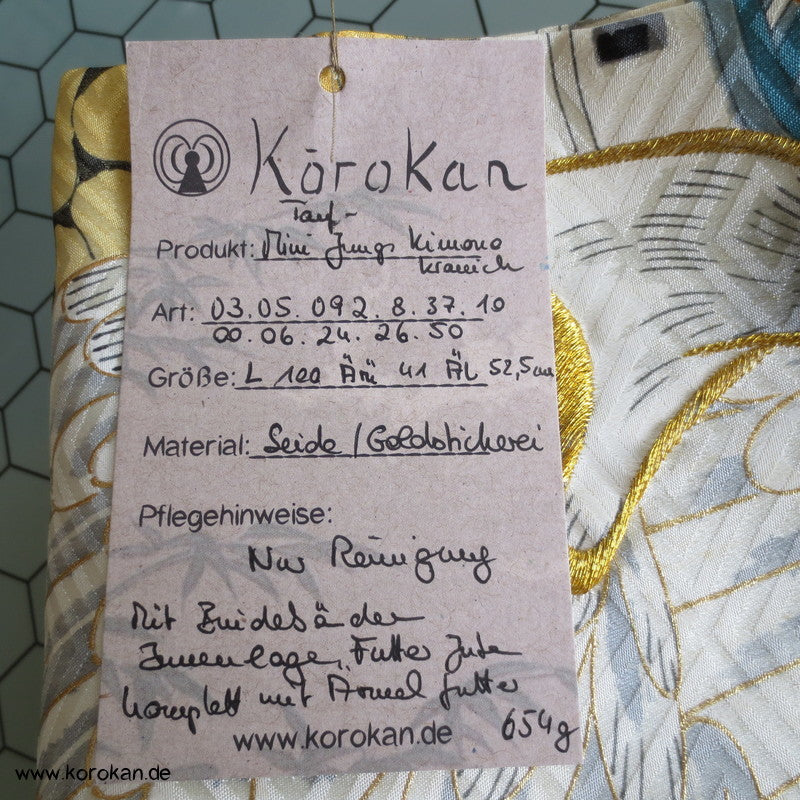 Korokan
Tauf-
Produkt: Mini Jungs Kimono
Kranich
Art: 03.05.092.8.37.10
00.06.24.26.50
Größe: L 100 Ärm 41 ÄL 52,5cm
Material: Seide / Goldstickerei
Pflegehinweise:
Nur Reinigung
Mit Bindebänder
Innenlage, Futter
komplett mit Ärmel futter
www.korokan.de 654g
www.korokan.de